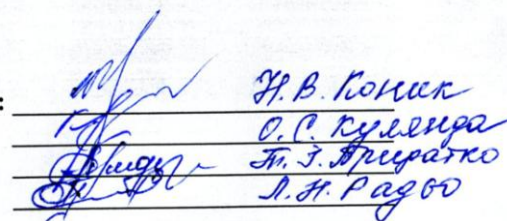 :
Н.В. Коник
О.С. Кулянда
Т.З. Придатко
Л.Н. Радьо